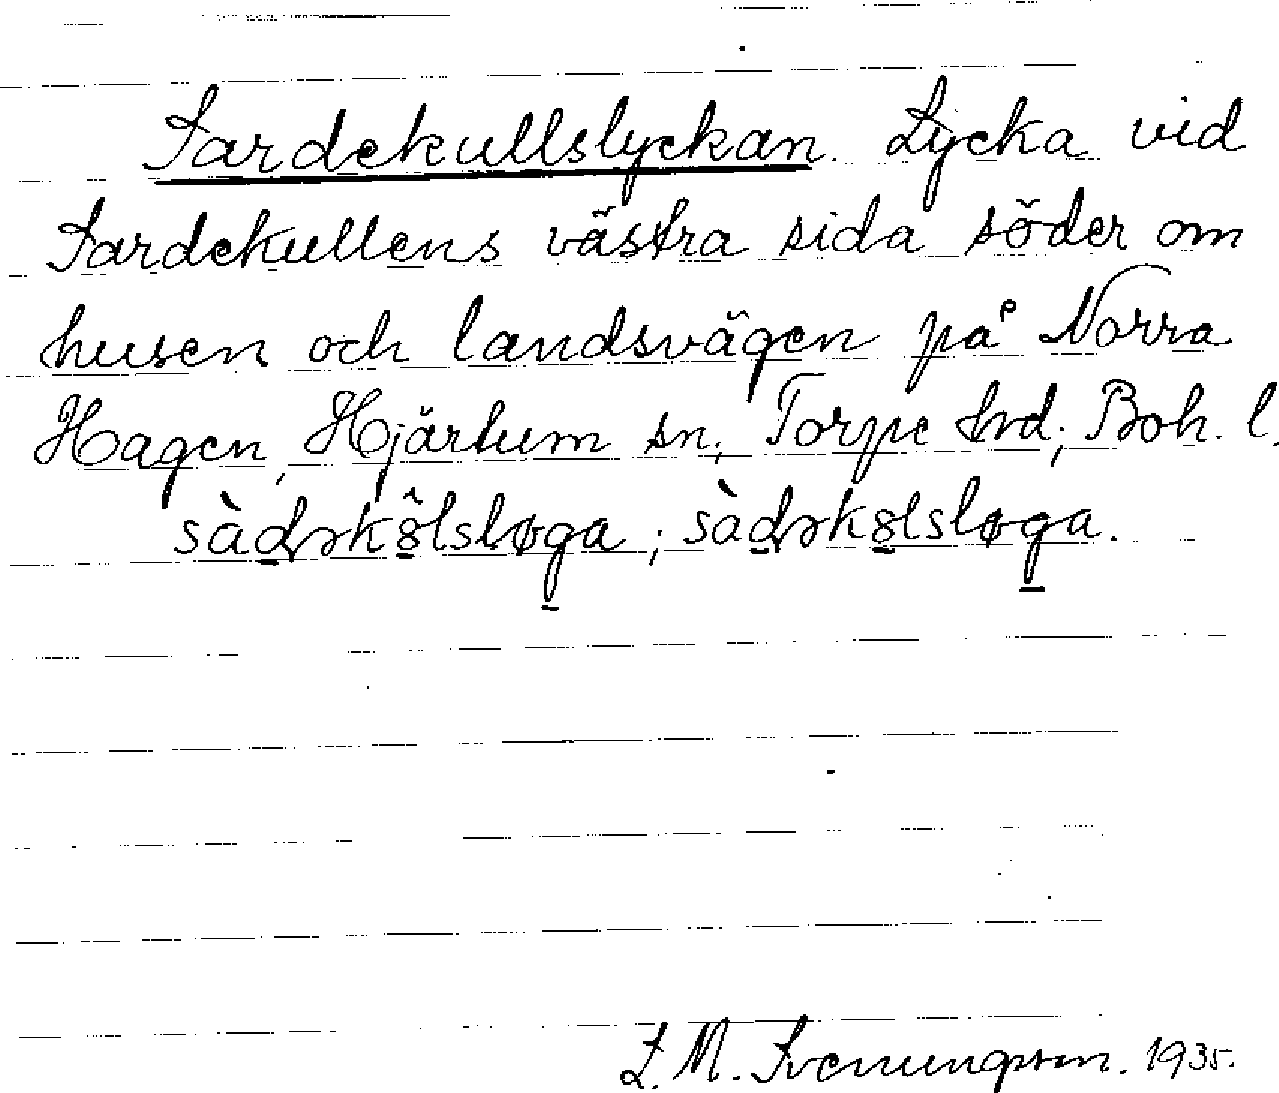 Sardekullslyckan. Lycka vid
Sardekullens västra sida söder om
husen och landsvägen på Norra
Hagen, Hjärtum sn, Torpe hrd, Boh. l.
sàdəkölsløga; sàdəkölsløga.
S. M. Svenungsson. 1935.